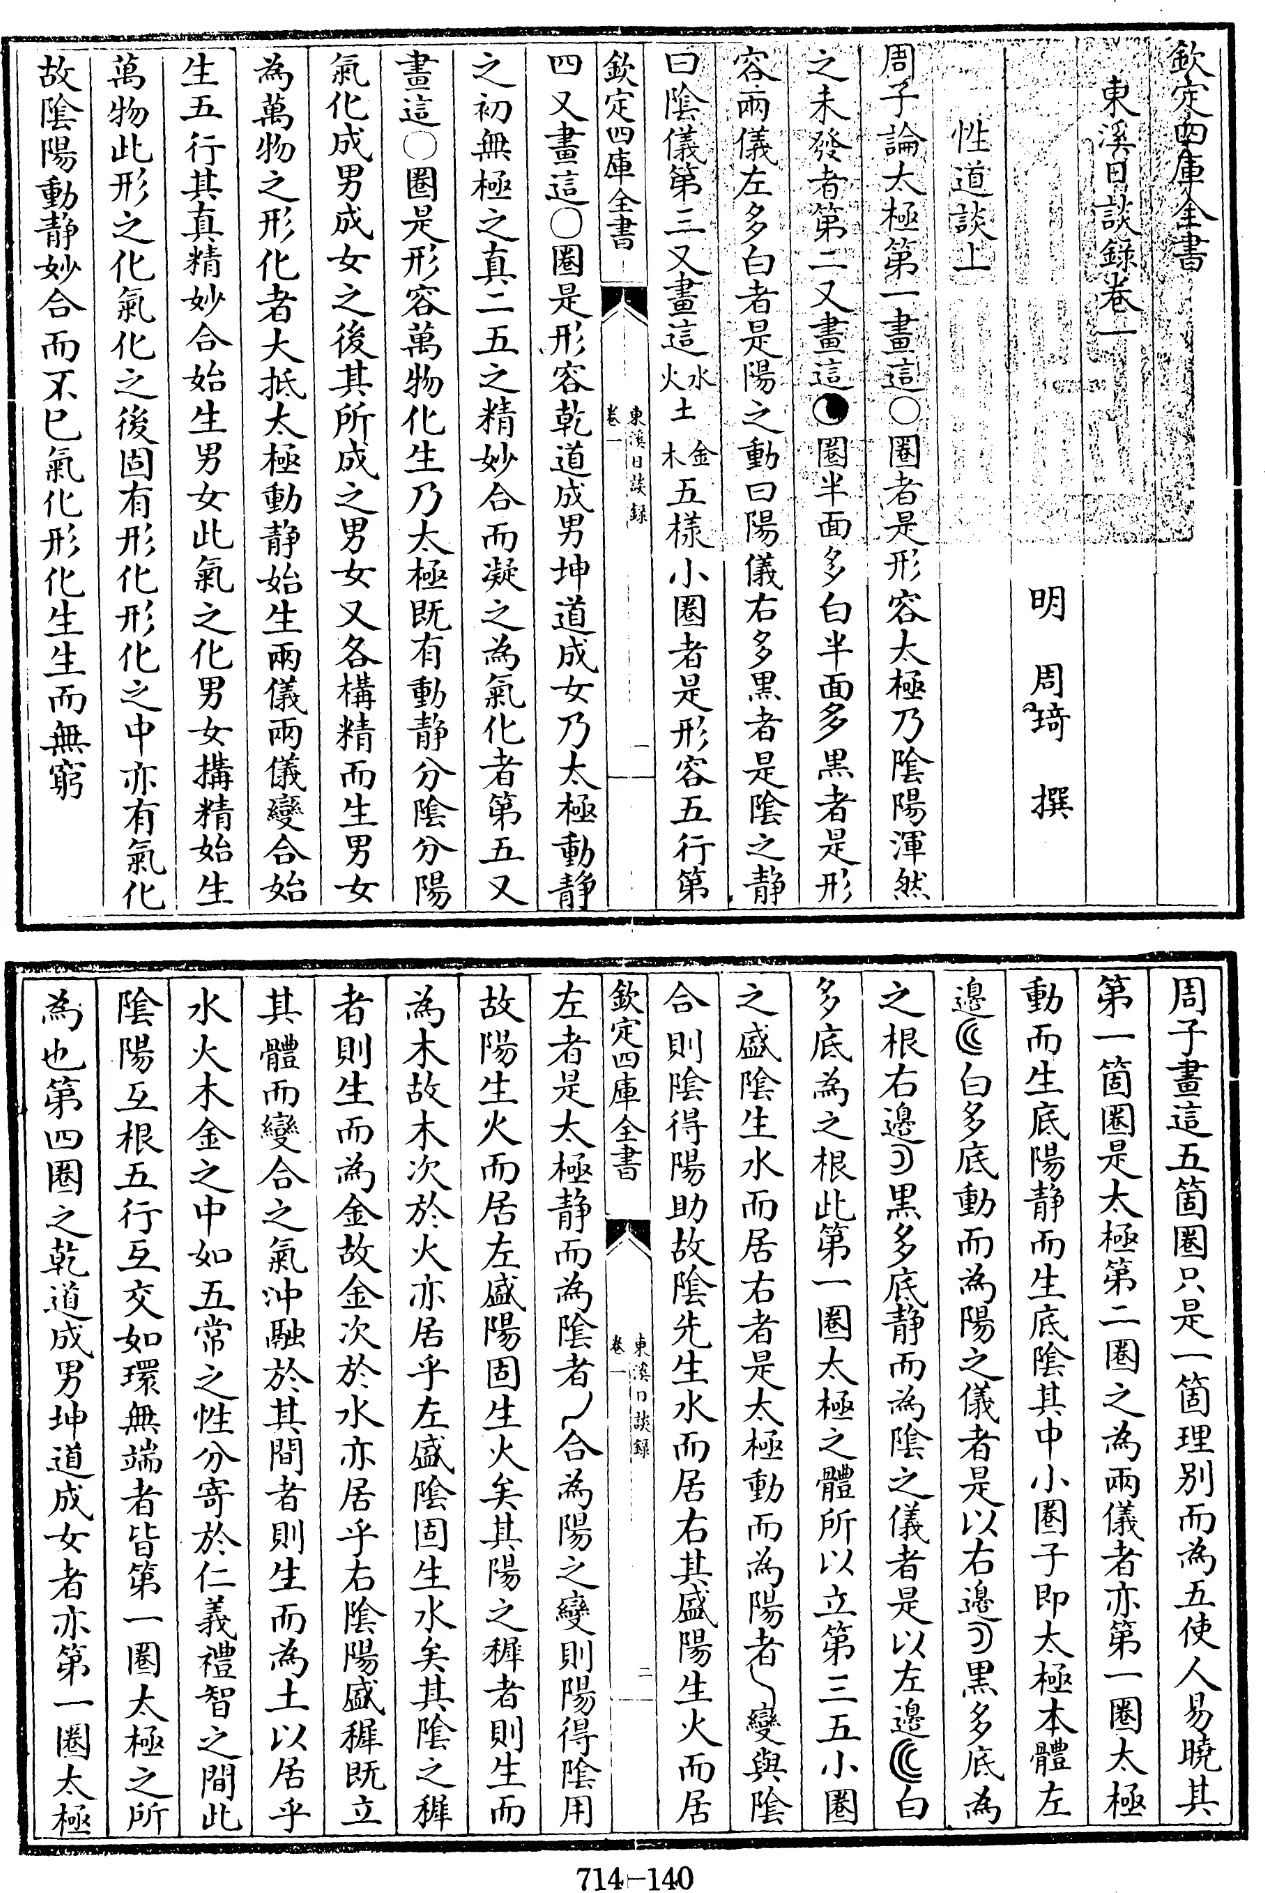 欽定四庫全書
東溪日談錄卷一
明 周琦 撰
性道談上
周子論太極第一畫這○圈者是形容太極乃陰陽渾然
之未發者第二又畫這圈半面多白半面多黑者是形
容兩儀左多白者是陽之動曰陽儀右多黑者是陰之靜
曰陰儀第三又畫這水火土金木五樣小圈者是形容五行第
欽定四庫全書
東溪日談錄
卷一
一
四又畫這○圈是形容乾道成男坤道成女乃太極動靜
之初無極之真二五之精妙合而凝之為氣化者第五又
畫這○圈是形容萬物化生乃太極既有動靜分陰分陽
氣化成男成女之後其所成之男女又各構精而生男女
為萬物之形化者大抵太極動靜始生兩儀兩儀變合始
生五行其真精妙合始生男女此氣之化男女搆精始生
萬物此形之化氣化之後固有形化形化之中亦有氣化
故陰陽動靜妙合而不已氣化形化生生而無窮
周子畫這五箇圈只是一箇理別而為五使人易曉其
第一箇圈是太極第二圈之為兩儀者亦第一圈太極
動而生底陽靜而生底陰其中小圈子即太極本體左
邊白多底動而為陽之儀者是以右邊黑多底為
之根右邊黑多底靜而為陰之儀者是以左邊白
多底為之根此第一圈太極之體所以立第三五小圈
之盛陰生水而居右者是太極動而為陽者㇏變與陰
合則陰得陽助故陰先生水而居右其盛陽生火而居
欽定四庫全書
東溪日談錄
卷一
二
左者是太極靜而為陰者丿合為陽之變則陽得陰用
故陽生火而居左盛陽固生火矣其陽之穉者則生而
為木故木次於火亦居乎左盛陰固生水矣其陰之穉
者則生而為金故金次於水亦居乎右陰陽盛穉既立
其體而變合之氣沖融於其間者則生而為土以居乎
水火木金之中如五常之性分寄於仁義禮智之間此
陰陽互根五行互交如環無端者皆第一圈太極之所
為也第四圈之乾道成男坤道成女者亦第一圈太極
714-140